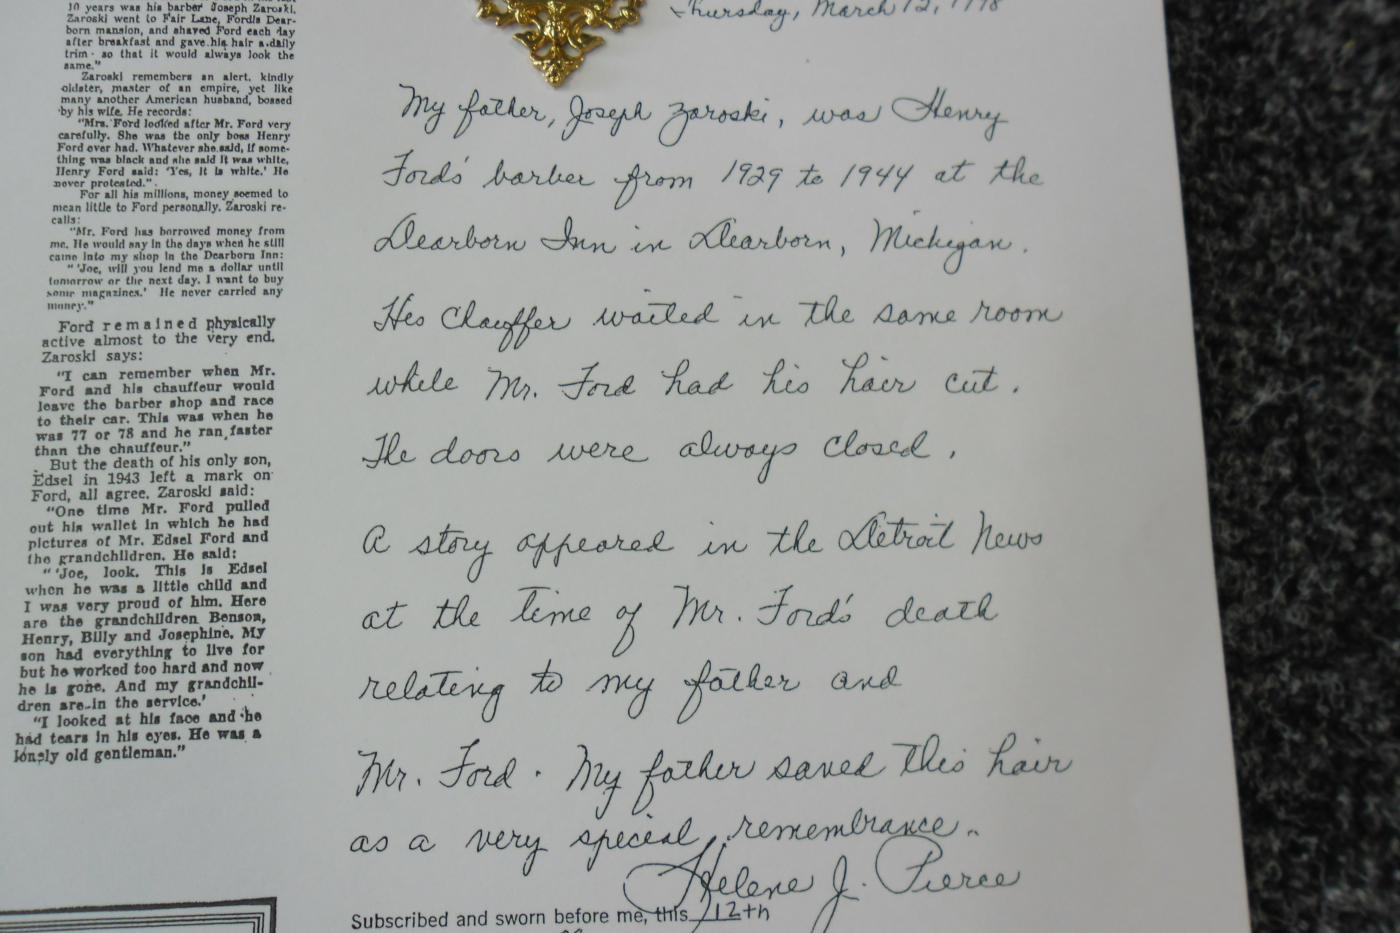 10 years was his barber Joseph Zaroski,
Zaroski went to Fair Lane, Ford's Dear-
born mansion, and shaved Ford each day
after breakfast and gave his hair a daily
trim - so that it would always look the
same."
Zaroski remembers an alert, kindly
oldster, master of an empire, yet like
many another American husband, bossed
by his wife. He records:
"Mrs. Ford looked after Mr. Ford very
carefully. She was the only boss Henry
Ford ever had. Whatever she said, if some-
thing was black and she said it was white,
Henry Ford said: 'Yes, it is white.' He
never protested."
For all his millions, money seemed to
mean little to Ford personally. Zaroski re-
calls:
"Mr. Ford has borrowed money from
me. He would say in the days when he still
came into my shop in the Dearborn Inn:
" 'Joe, will you lend me a dollar until
tomorrow or the next day. I want to buy
some magazines.' He never carried any
money."
Ford remained physically
active almost to the very end.
Zaroski says:
"I can remember when Mr.
Ford and his chauffeur would
leave the barber shop and race
to their car. This was when he
was 77 or 78 and he ran faster
than the chauffeur."
But the death of his only son,
Edsel in 1943 left a mark on
Ford, all agree. Zaroski said:
"One time Mr. Ford pulled
out his wallet in which he had
pictures of Mr. Edsel Ford and
the grandchildren. He said:
" 'Joe, look. This is Edsel
when he was a little child and
I was very proud of him. Here
are the grandchildren Benson,
Henry, Billy and Josephine. My
son had everything to live for
but he worked too hard and now
he is gone. And my grandchil-
dren are in the service.'
"I looked at his face and he
had tears in his eyes. He was a
lonely old gentleman."
Thursday, March 12, 1998
My father, Joseph Zaroski, was Henry
Ford's barber from 1929 to 1944 at the
Dearborn Inn in Dearborn, Michigan.
His Chauffer waited in the same room
while Mr. Ford had his hair cut.
The doors were always closed.
A story appeared in the Detroit News
at the time of Mr. Ford's death
relating to my father and
Mr. Ford. My father saved this hair
as a very special remembrance.
Helene J. Pierce
Subscribed and sworn before me, this 12th